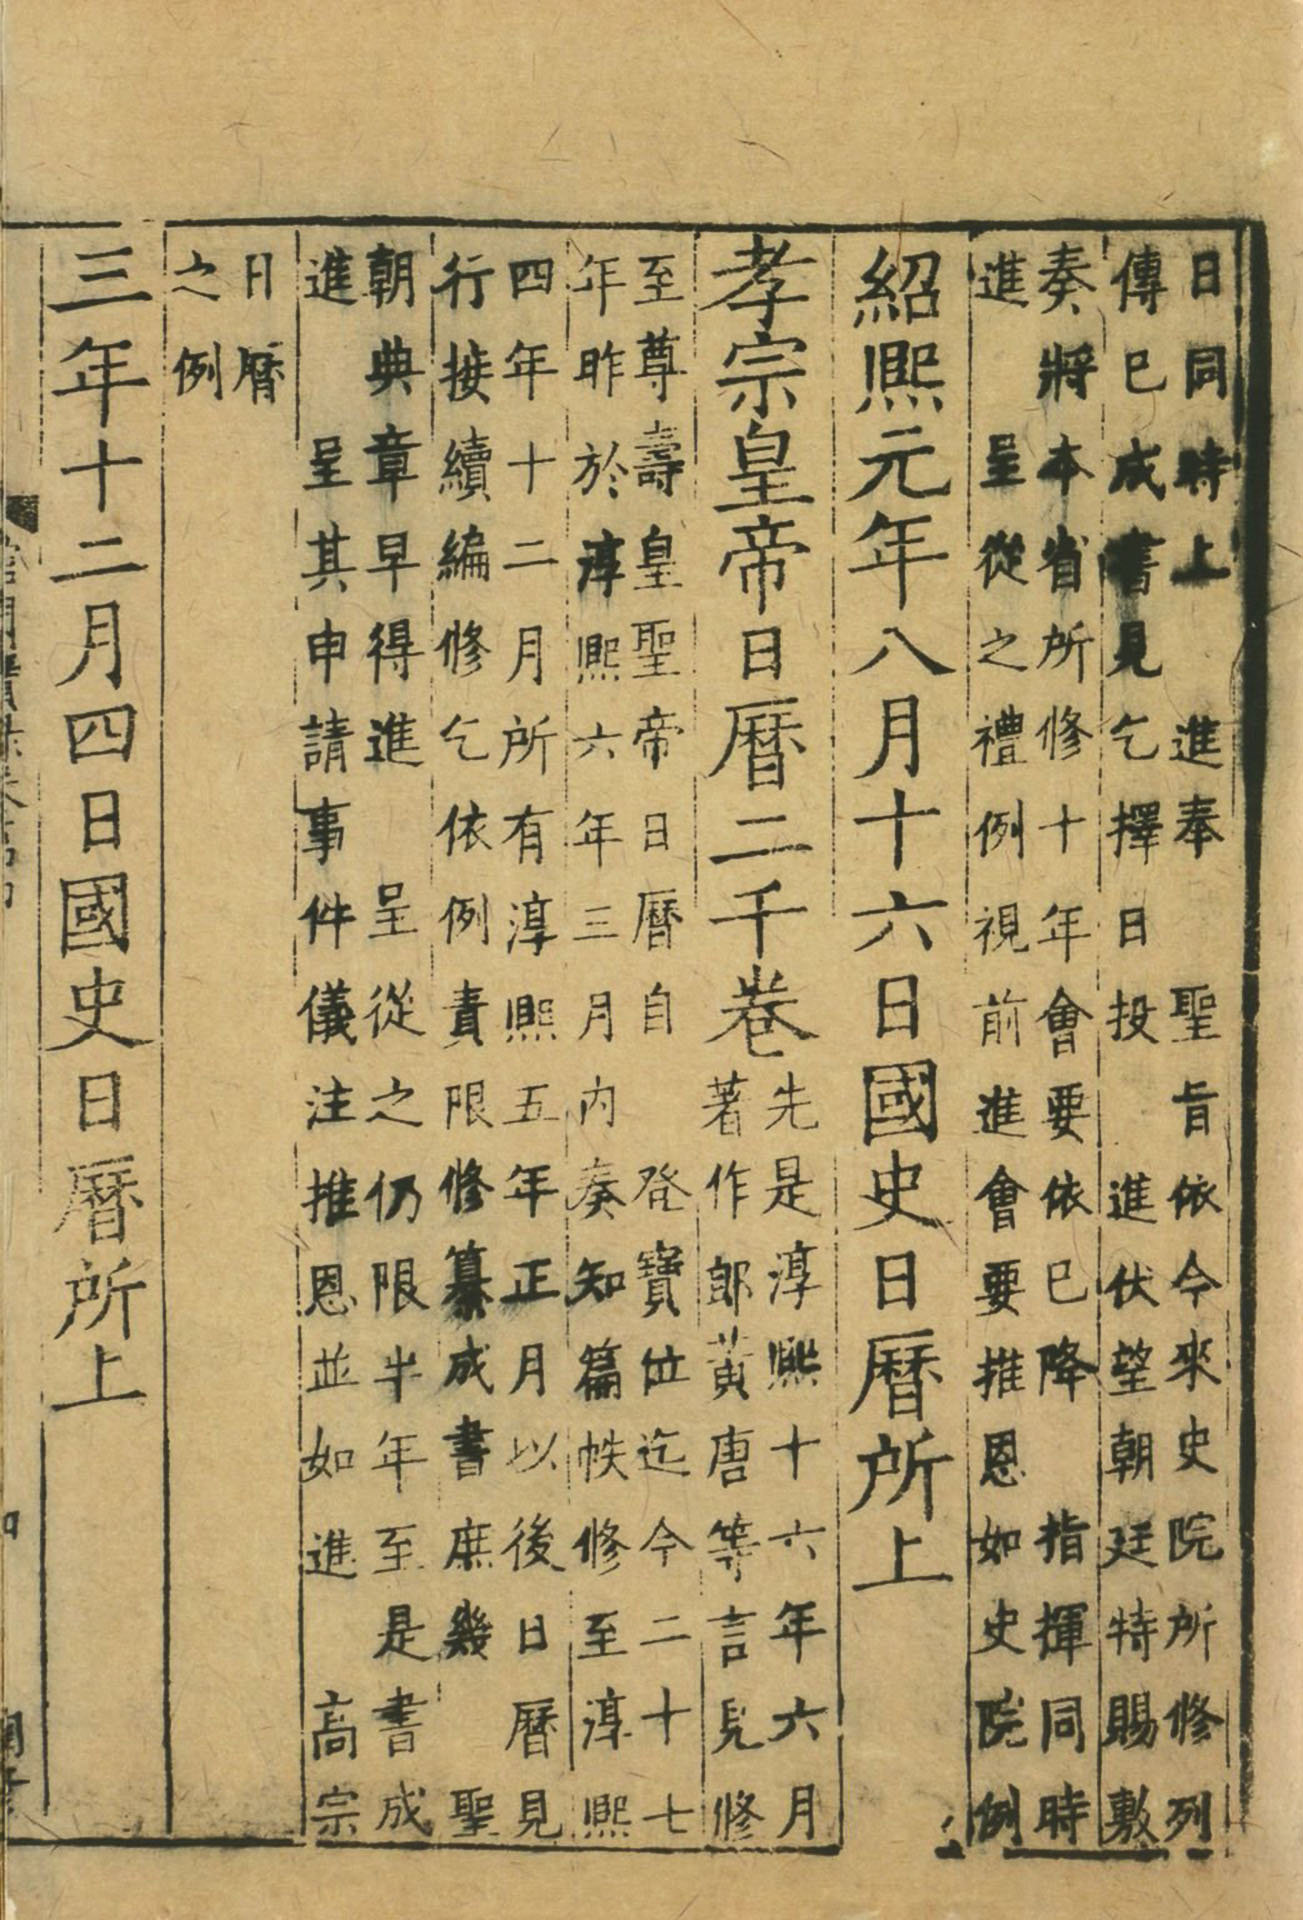 日同時上　進奉　聖旨依今來史院所修列
傳已成書見乞擇日投　進伏望朝廷特賜敷
奏將本省所修十年會要依已降　指揮同時
進　呈從之禮例視前進會要推恩如史院例
紹熙元年八月十六日國史日曆所上
孝宗皇帝日曆二千卷
先是淳熙十六年六月
著作郎黃唐等言見修
至尊壽皇聖帝日曆自　登寶位迄今二十七
年昨於淳熙六年三月內奏知篇帙修至淳熙
四年十二月所有淳熙五年正月以後日曆見
行接續編修乞依例責限修纂成書庶幾　聖
朝典章早得進　呈從之仍限半年至是書成
進　呈其申請事件儀注推恩並如進　高宗
日曆
之例
三年十二月四日國史日曆所上